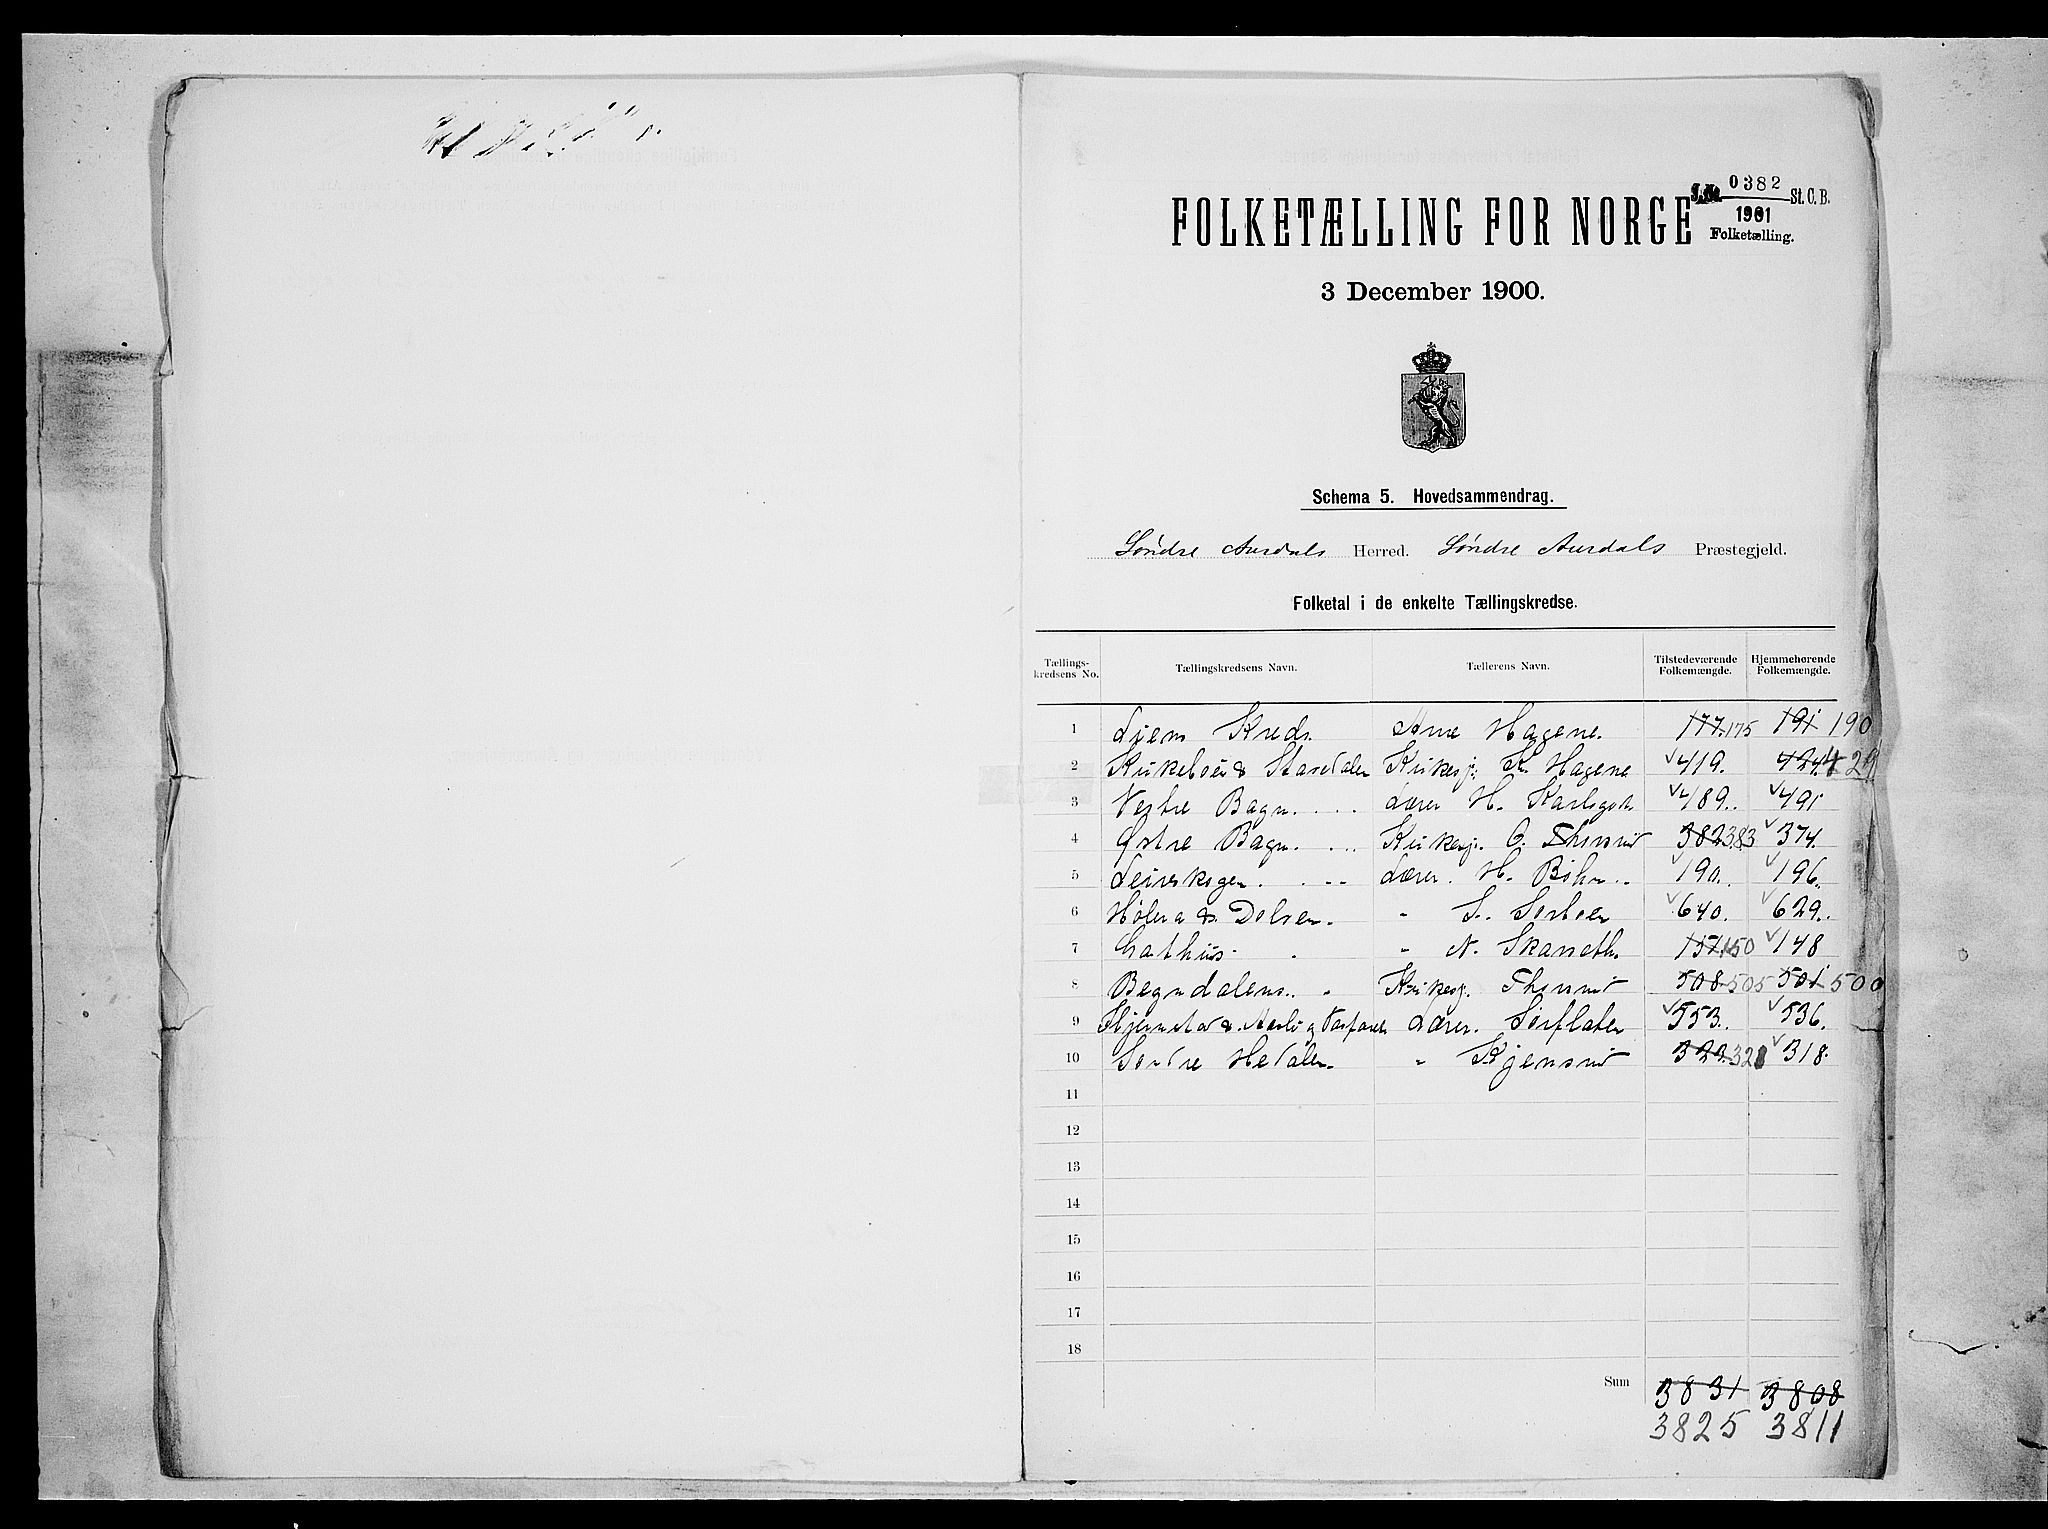 J. No. 0382 St. C. B.
1901
Folketælling.
FOLKETÆLLING FOR NORGE
3 December 1900.
Schema 5. Hovedsammendrag.
Søndre Aurdals Herred. Søndre Aurdals Præstegjeld.
Folketal i de enkelte Tællingskredse.
Tællings-kredsens No. Tællingskredsens Navn. Tællerens Navn. Tilstedeværende Folkemængde. Hjemmehørende Folkemængde.
1 Liens Kreds. Arne Hagene. 177. 175 191 190
2 Kirkeboer & Stavedalen Kirkesj. K. Hagene 419. 424. 429
3 Vestre Bagn. Lærer H. Karlsgodt 489. 491
4 Østre Bagn. Kirkesj. O. Thorsrud 382 383 374.
5 Leirskogen. Lærer. H. Bøhn 190. 196.
6 Hølera & Dølven. " S. Sørboen 640. 629.
7 Garthus " N. Skareth. 151. 150 148
8 Begndalens " Kirkesj. Thorsrud 508 505 501 500
9 Hjernstad & Aasli og Lærer. Sørflaten 553. 536.
10 Søndre Hedalen. " Kjensrud 322. 320 318.
11
12
13
14
15
16
17
18
Sum 3831 3808
3825 3811